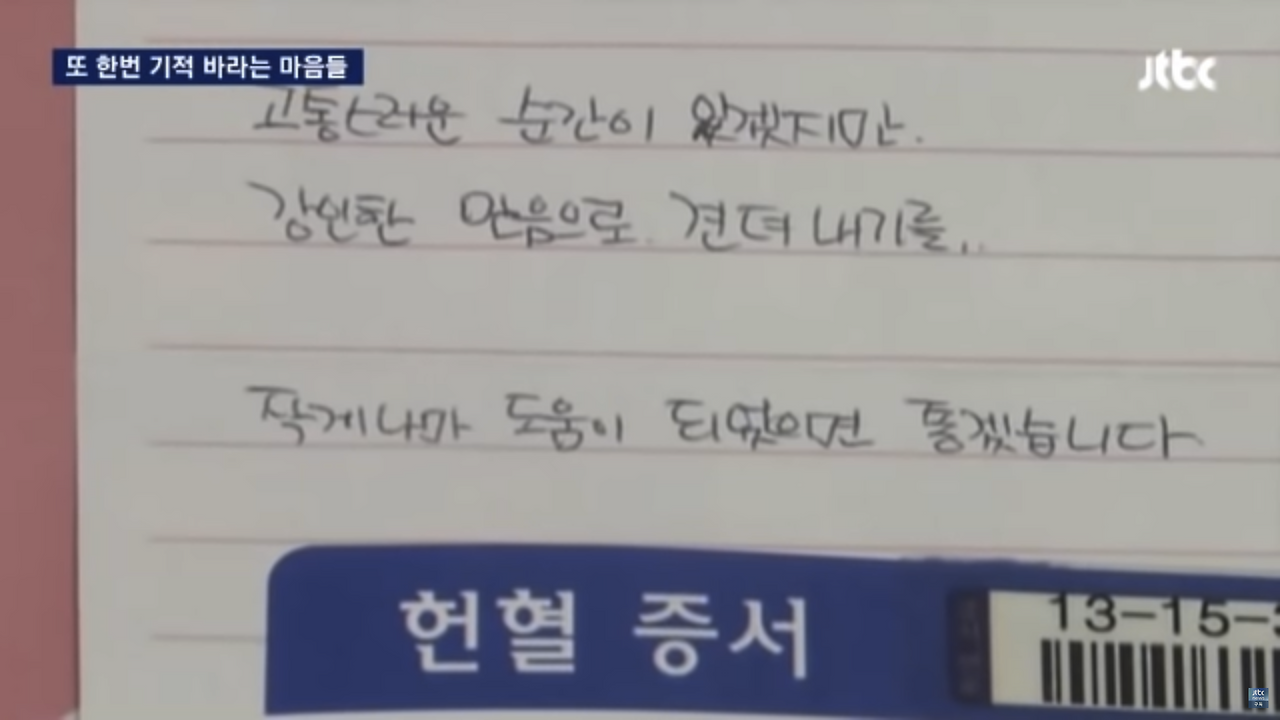 또 한번 기적 바라는 마음들
jtbc
고통스러운 순간이 있겠지만.
강인한 믿음으로. 견뎌 내기를...
작게나마 도움이 되었으면 좋겠습니다
헌혈 증서
13-15-
jtbc